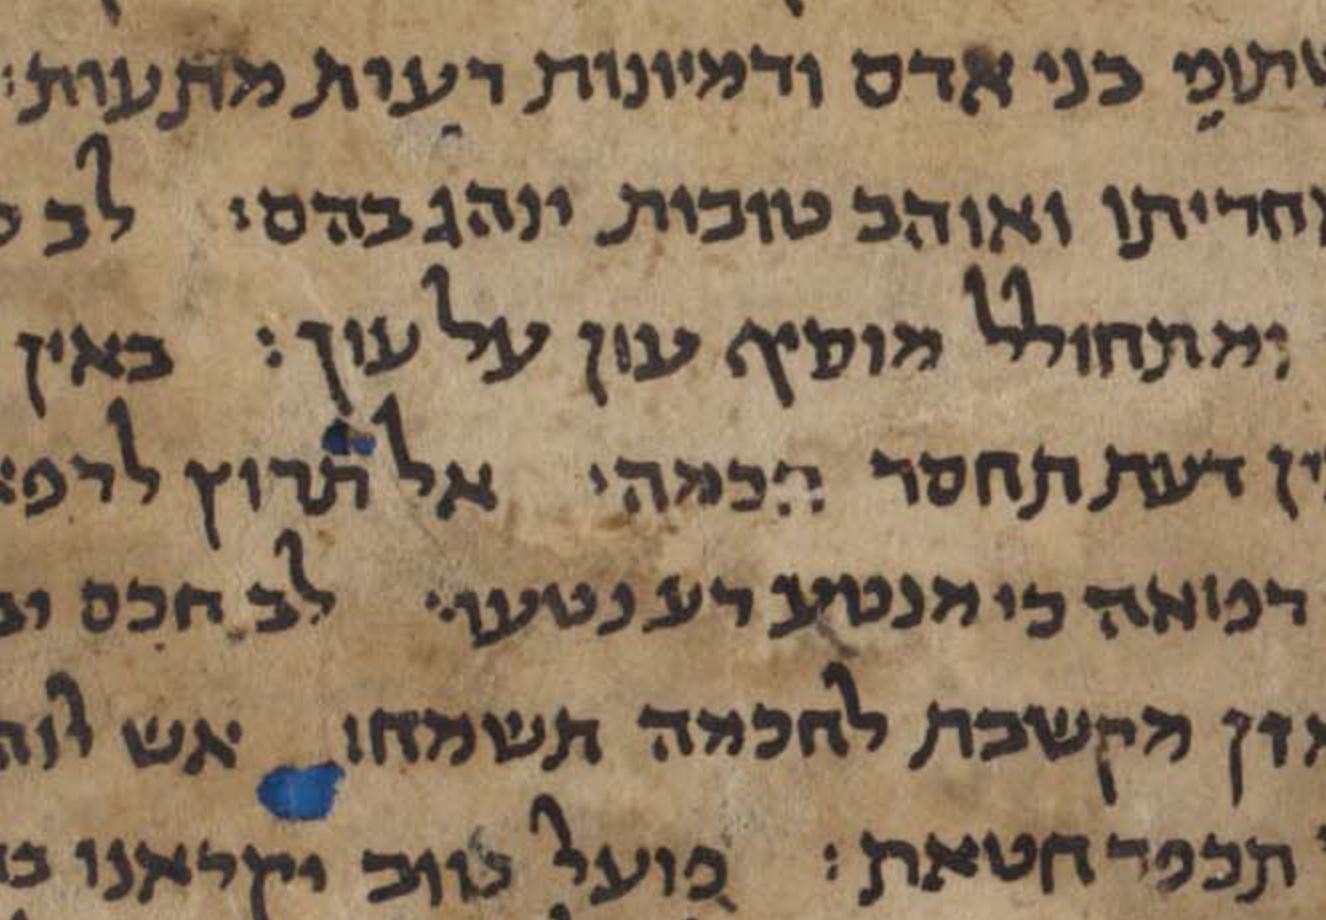 שתומֵ בני אדם ודמיונות רעות מתעות:
וחריתו ואוהב טובות ינהג בהם: לב
ומתחולל מוסיף עון על עון: באין
דעת תחסר חכמה: אל תרוץ לרפא
רפואה כי מנטע רע נטעו: לב חכם
מקשבת לחכמה תשמח: אש
תכפר חטאת: פועל טוב יקראנו